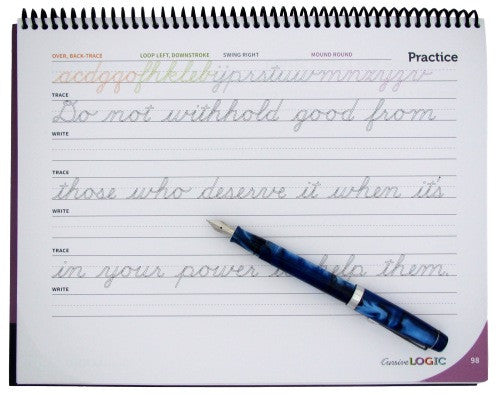 Practice
OVER, BACK-TRACE LOOP LEFT, DOWNSTROKE SWING RIGHT MOUND ROUND
TRACE
Do not withhold good from
WRITE
TRACE
those who deserve it when it's
WRITE
TRACE
in your power help them.
WRITE
CursiveLOGIC 98